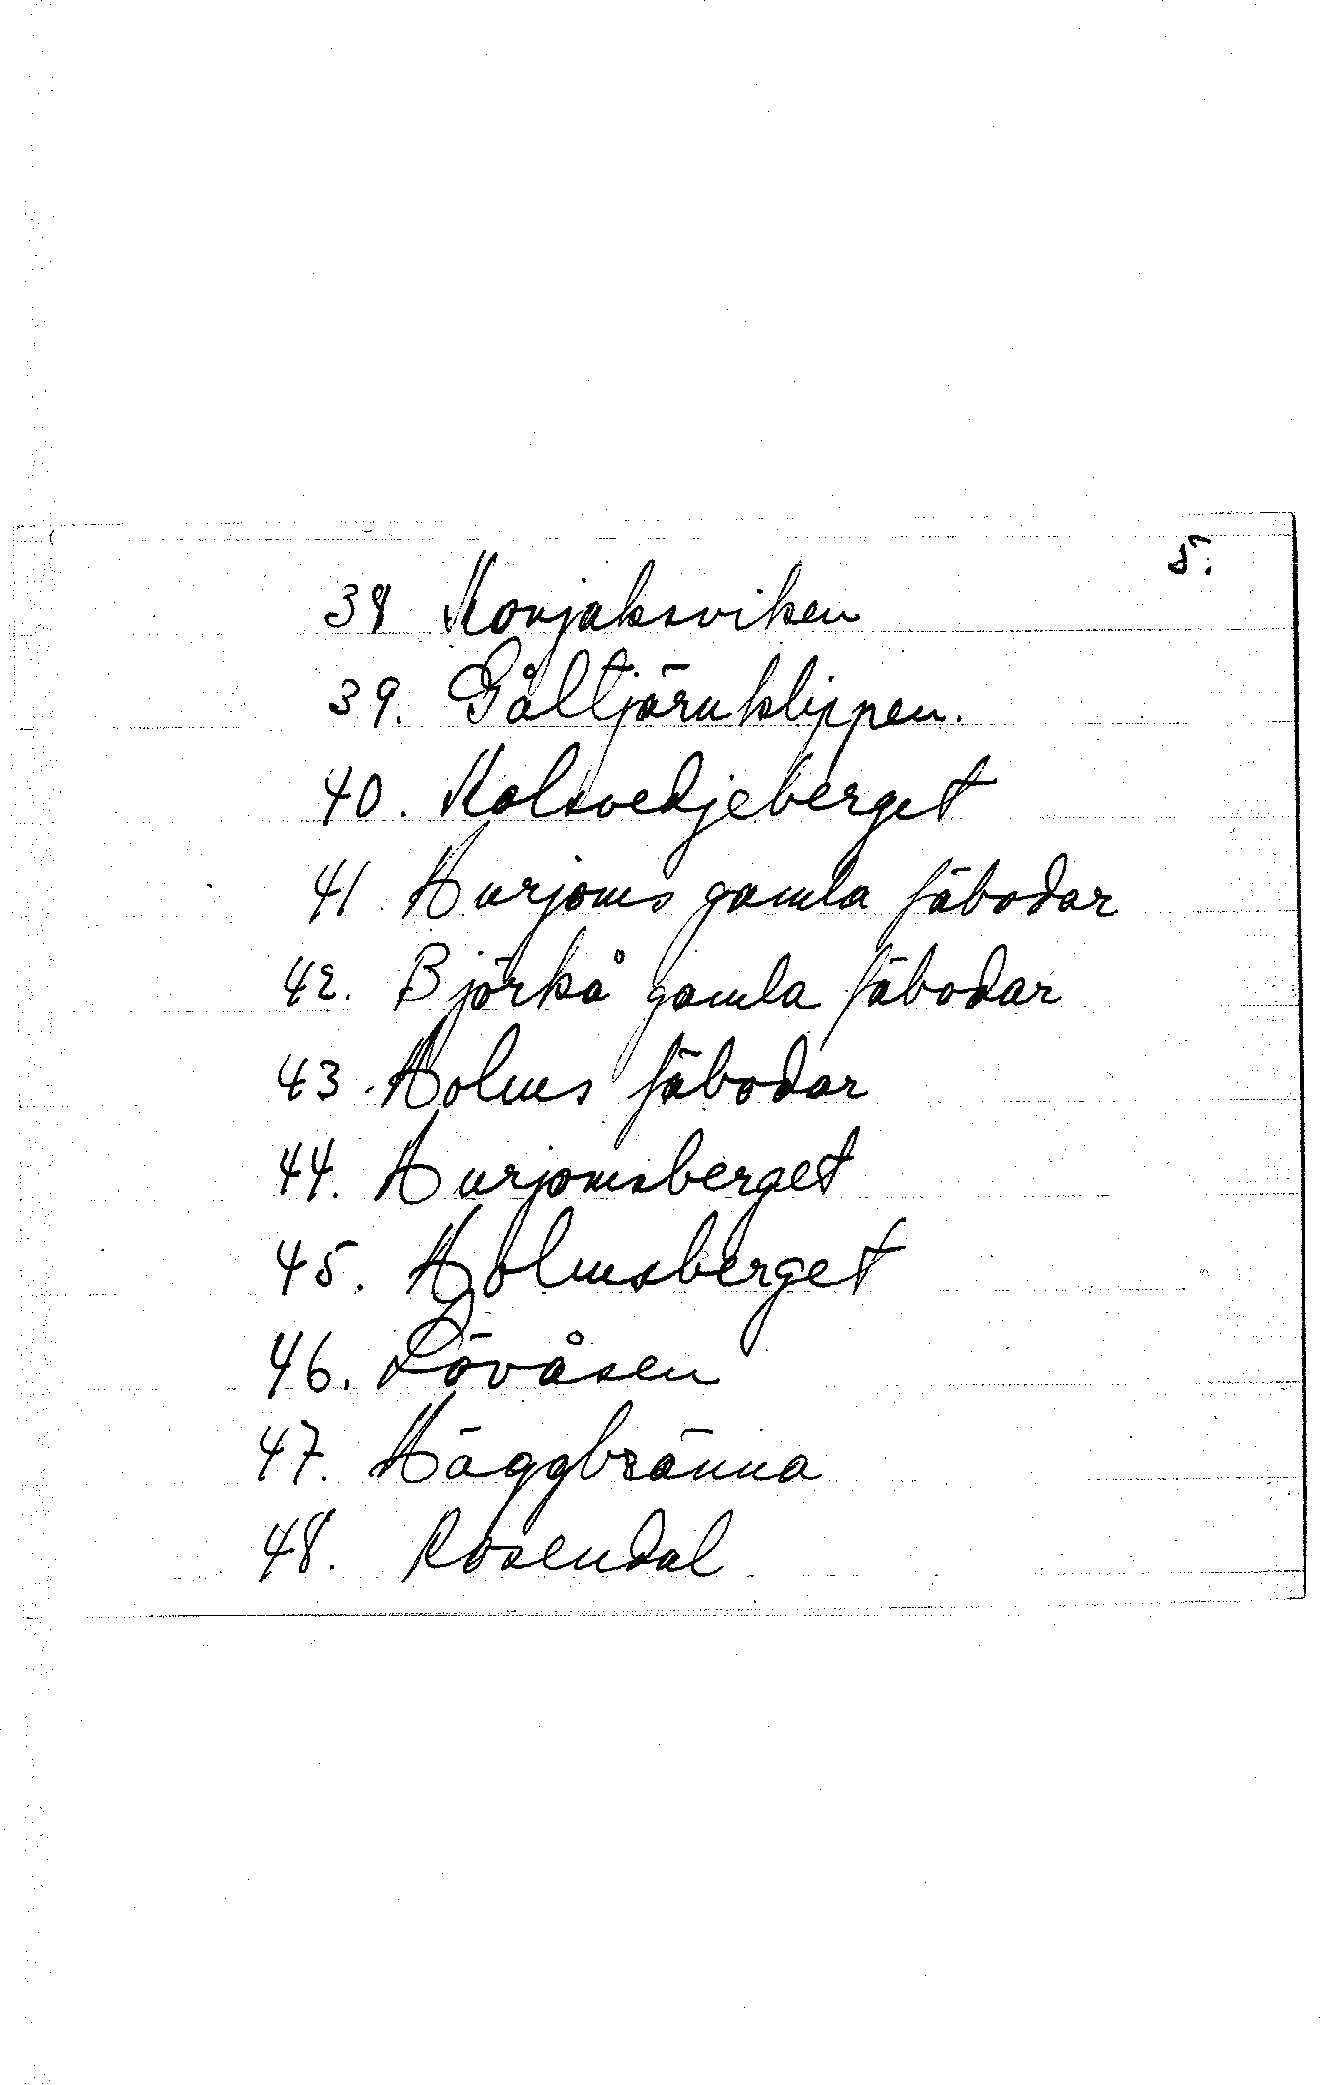 5.
38 Konjaksviken
39. Gåltjärnklippen.
40. Kolsvedjeberget
41 Hurjoms gamla fäbodar
42. Björkå gamla fäbodar
43. Holms fäbodar
44. Hurjomsberget
45. Holmsberget
46. Lövåsen
47. Häggbränna
48. Rosendal